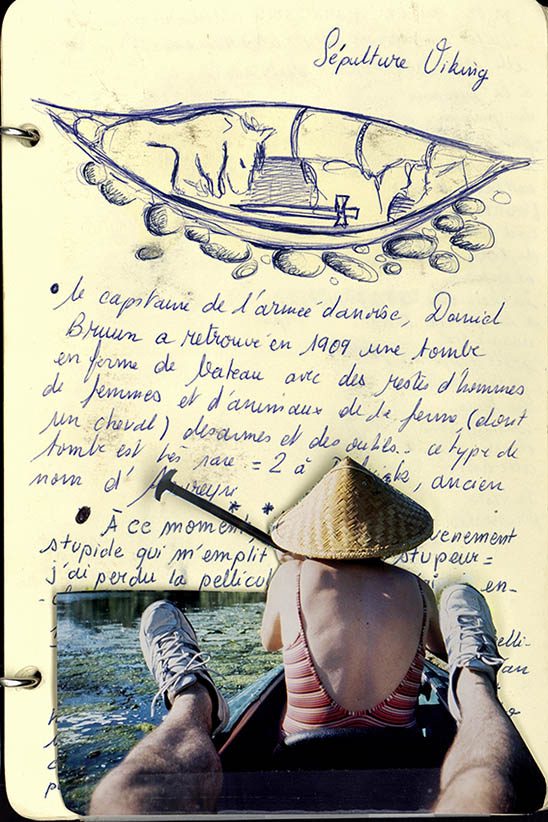 Sépulture Viking
• le capitaine de l'armée danoise, Daniel
Bruun a retrouvé en 1909 une tombe
en forme de bateau avec des restes d'hommes
de femmes et d'animaux de la ferme, (dont
un cheval) des armes et des outils.. ce type de
tombe est très rare = 2 à, ancien
nom d'
• À ce moment, venement
stupide qui m'emplit stupeur =
j'ai perdu la pellicul en-